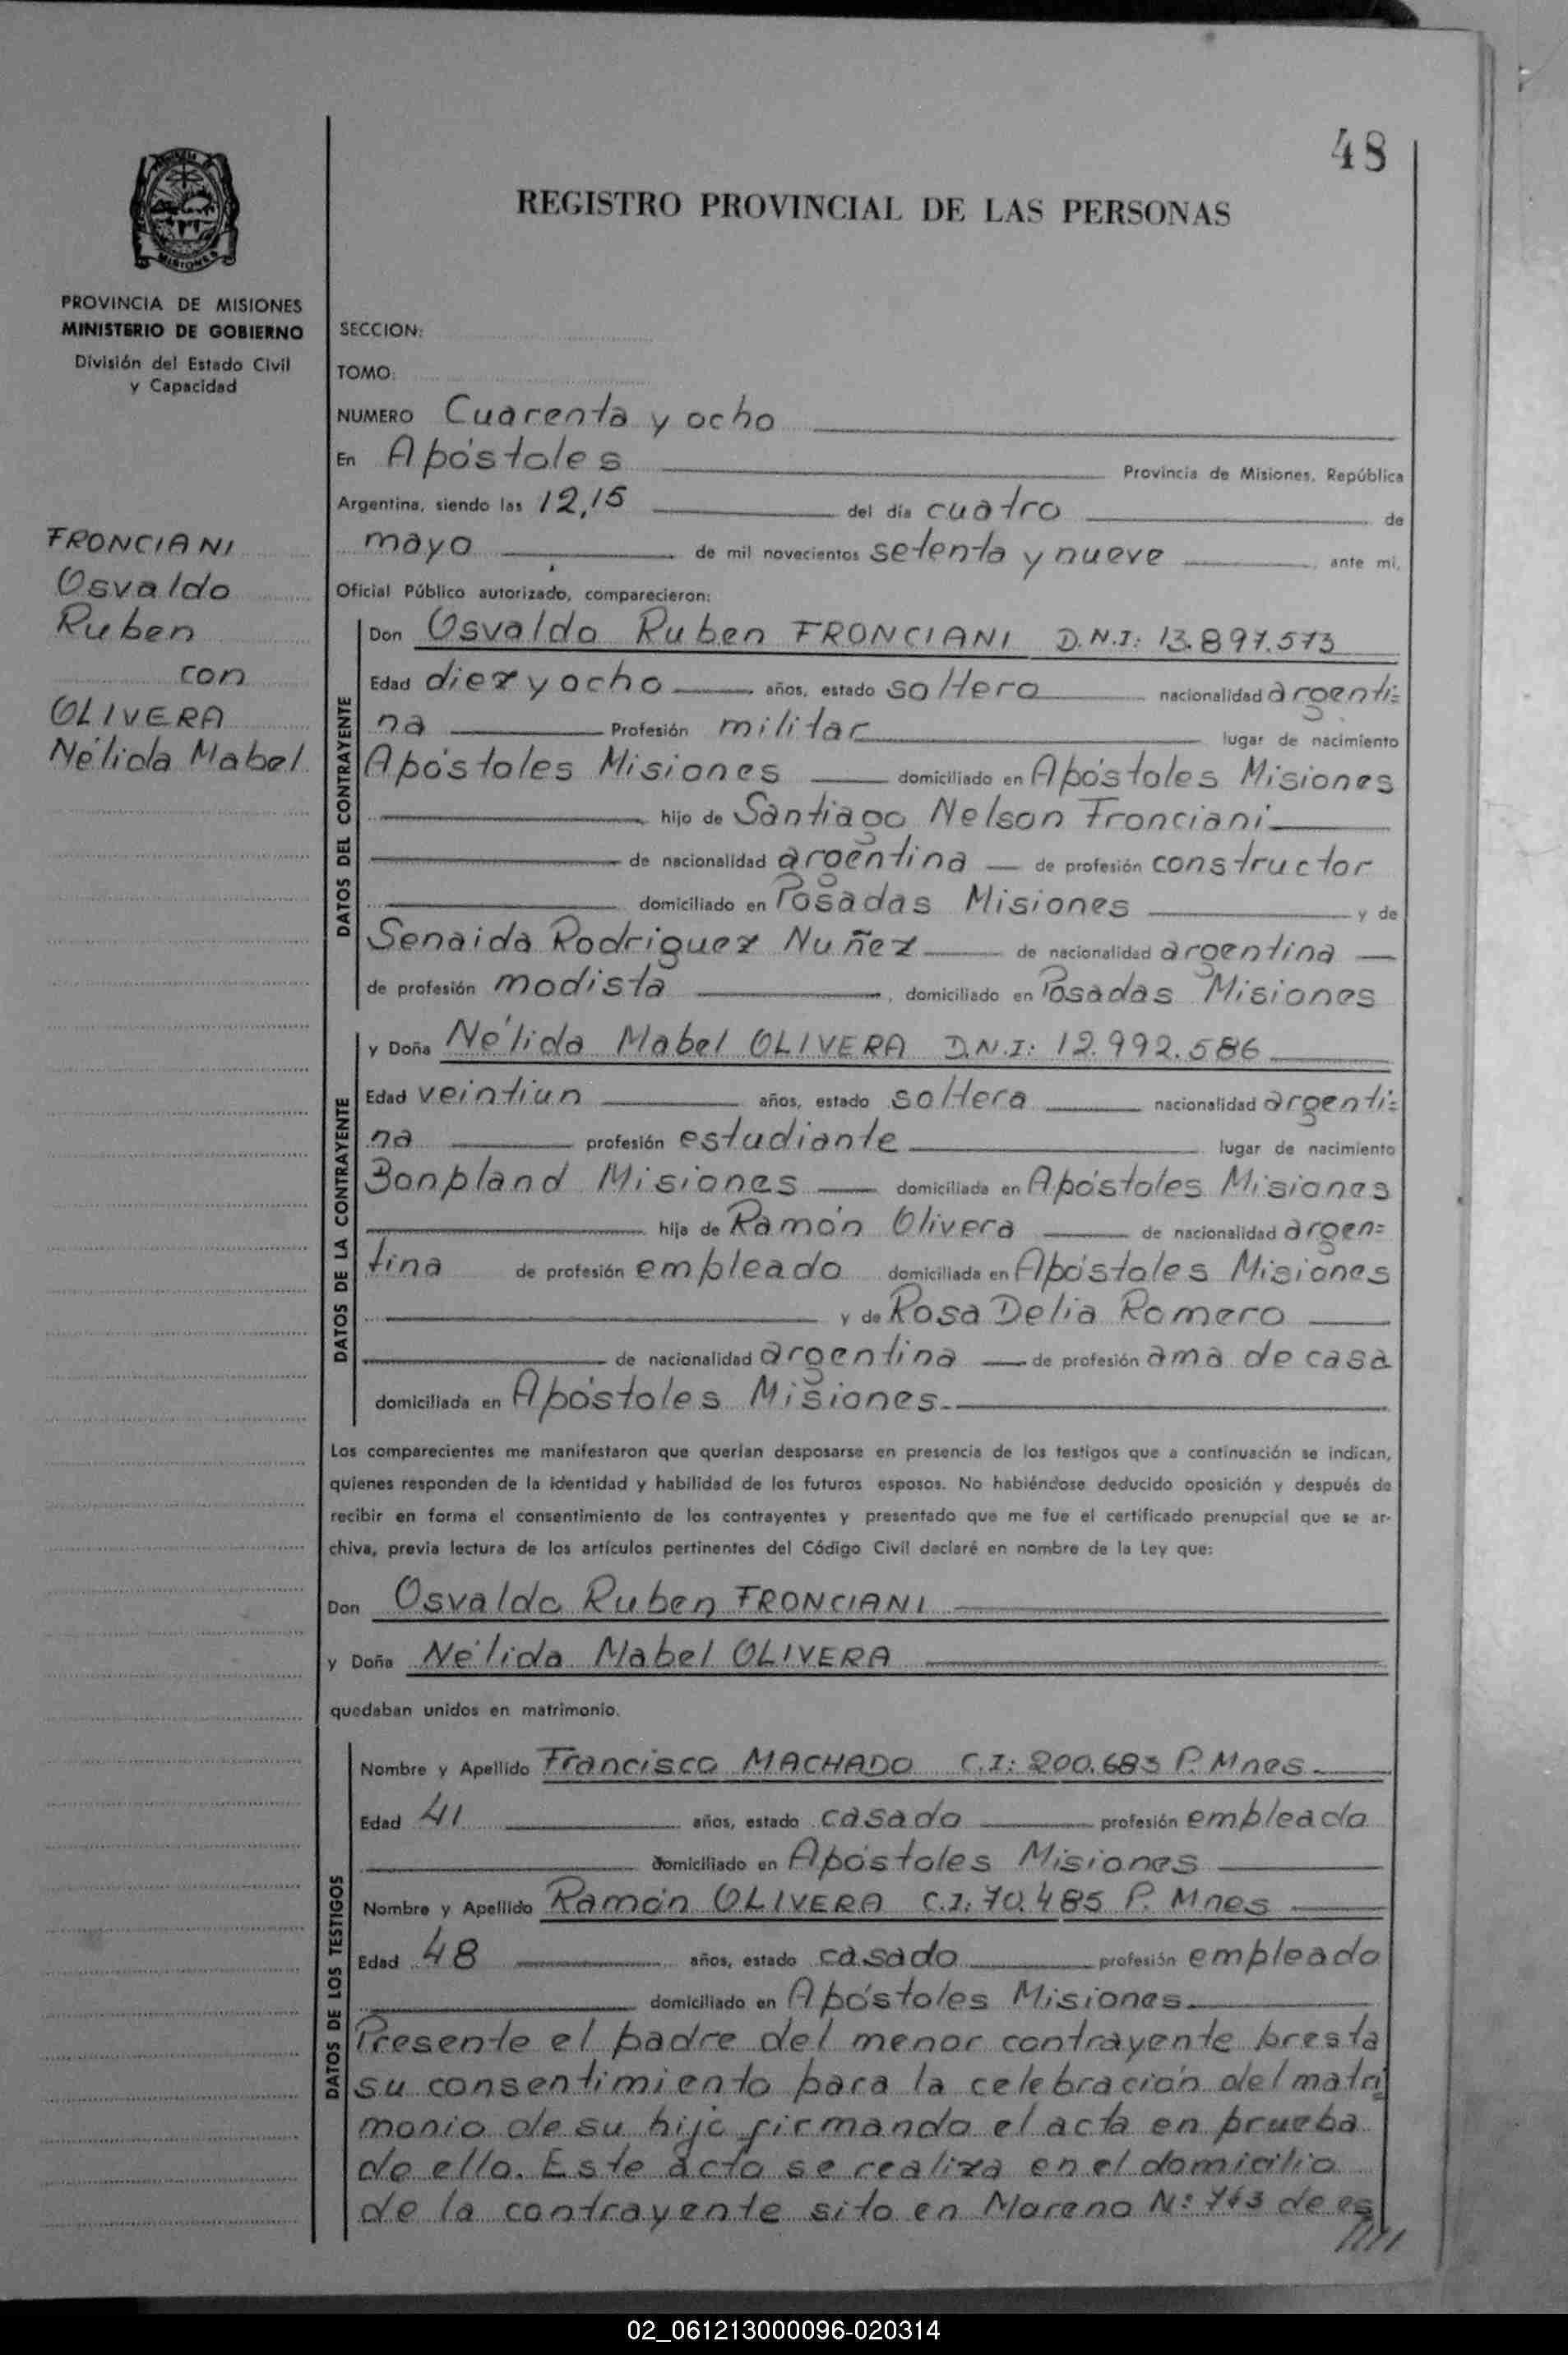 48
REGISTRO PROVINCIAL DE LAS PERSONAS
PROVINCIA DE MISIONES
MINISTERIO DE GOBIERNO
División del Estado Civil
y Capacidad
FRONCIANI
Osvaldo
Ruben
con
OLIVERA
Nélida Mabel
SECCION:
TOMO:
NUMERO Cuarenta y ocho
En Apóstoles Provincia de Misiones, República
Argentina, siendo las 12,15 del día cuatro de
mayo de mil novecientos setenta y nueve, ante mi,
Oficial Público autorizado, comparecieron:
DATOS DEL CONTRAYENTE
Don Osvaldo Ruben FRONCIANI D.N.I: 13.897.573
Edad diez y ocho años, estado soltero nacionalidad argenti=
na Profesión militar lugar de nacimiento
Apóstoles Misiones domiciliado en Apóstoles Misiones
hijo de Santiago Nelson Fronciani
de nacionalidad argentina de profesión constructor
domiciliado en Posadas Misiones y de
Senaida Rodriguez Nuñez de nacionalidad argentina
de profesión modista, domiciliado en Posadas Misiones
DATOS DE LA CONTRAYENTE
y Doña Nélida Mabel OLIVERA D.N.I: 12.992.586
Edad veintiun años, estado soltera nacionalidad argenti=
na profesión estudiante lugar de nacimiento
Bonpland Misiones domiciliada en Apóstoles Misiones
hija de Ramón Olivera de nacionalidad argen=
tina de profesión empleado domiciliada en Apóstoles Misiones
y de Rosa Delia Romero
de nacionalidad argentina de profesión ama de casa
domiciliada en Apóstoles Misiones.
Los comparecientes me manifestaron que querían desposarse en presencia de los testigos que a continuación se indican,
quienes responden de la identidad y habilidad de los futuros esposos. No habiéndose deducido oposición y después de
recibir en forma el consentimiento de los contrayentes y presentado que me fue el certificado prenupcial que se ar-
chiva, previa lectura de los artículos pertinentes del Código Civil declaré en nombre de la Ley que:
Don Osvaldo Ruben FRONCIANI
y Doña Nélida Mabel OLIVERA
quedaban unidos en matrimonio.
DATOS DE LOS TESTIGOS
Nombre y Apellido Francisco MACHADO C.I: 200.683 P. Mnes.
Edad 41 años, estado casado profesión empleado
domiciliado en Apóstoles Misiones
Nombre y Apellido Ramón OLIVERA C.I: 70.485 P. Mnes
Edad 48 años, estado casado profesión empleado
domiciliado en Apóstoles Misiones.
Presente el padre del menor contrayente presta
su consentimiento para la celebración del matri
monio de su hijo firmando el acta en prueba
de ello. Este acto se realiza en el domicilio
de la contrayente sito en Moreno Nº de es
////
02_061213000096-020314